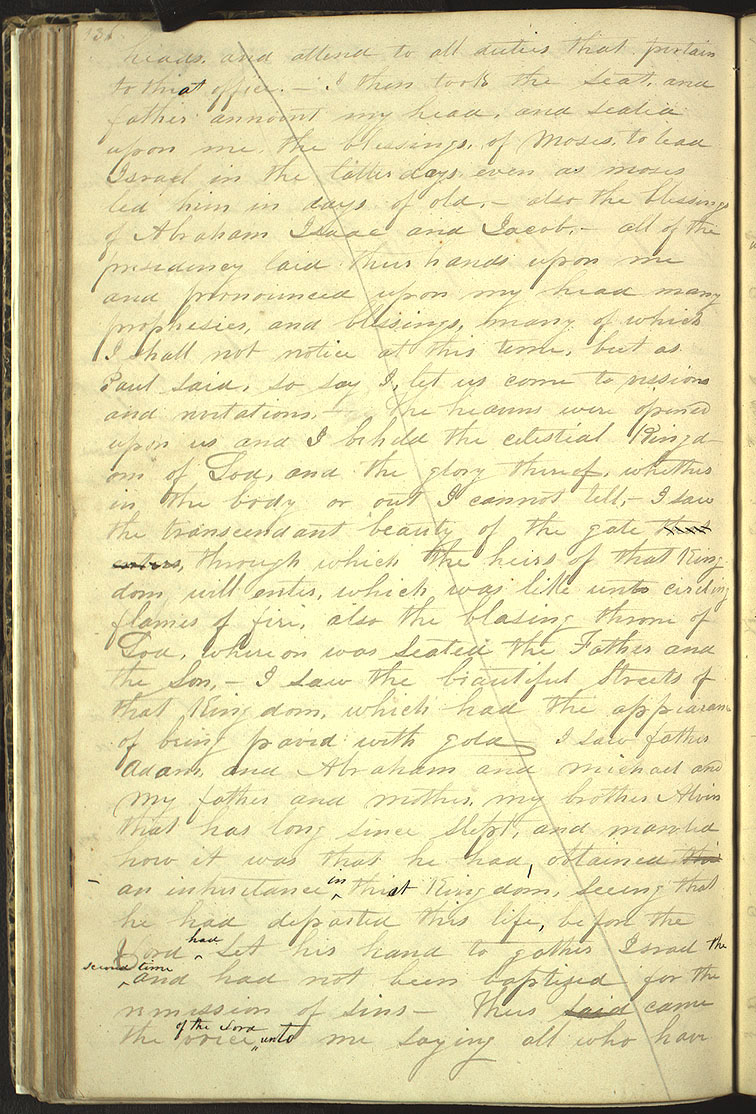 136
heads, and attend to all duties that pertain
to that office.— I then took the seat, and
father annoint my head, and sealed
upon me, the blessings, of Moses, to lead
Israel in the latter days, even as moses
led him in days of old,— also the blessings
of Abraham Isaac and Jacob,— all of the
presidency laid their hands upon me
and pronounced upon my head many
prophesies, and blessings, many of which
I shall not notice at this time, but as
Paul said, so say I, let us come to vissions
and revelations,— The heavens were opened
upon us and I beheld the celestial Kingd-
om of God, and the glory thereof, whether
in the body or out I cannot tell,— I saw
the transcendant beauty of the gate that
enters, through which the heirs of that King
dom will enter, which was like unto circling
flames of fire, also the blasing throne of
God, whereon was seated the Father and
the Son,— I saw the beautiful streets of
that Kingdom, which had the appearance
of being paved with gold— I saw father
Adam, and Abraham and Michael and
my father and mother, my brother Alvin
that has long since slept, and marvled
how it was that he had obtained this
an inheritance in that Kingdom, seeing that
he had departed this life, before the
Lord had Set his hand to gather Israel the
second time and had not been baptized for the
remission of sins— Thus said came
the voice of the Lord unto me saying all who have